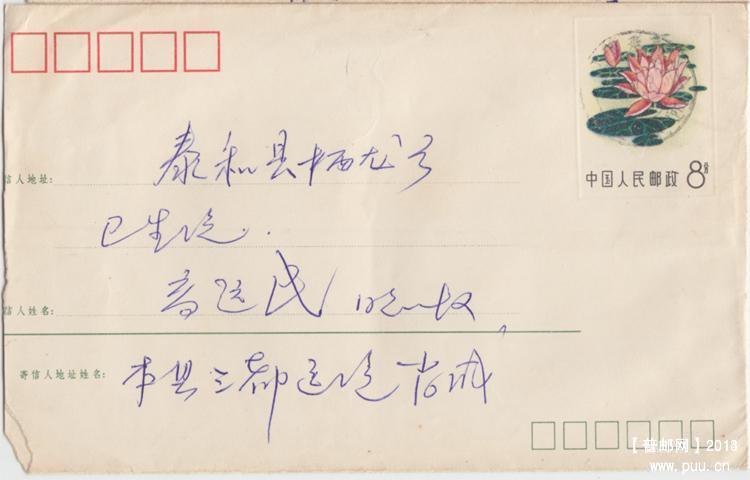 中国人民邮政 8分
信人地址: 泰和县栖龙
卫生院.
信人姓名: 高运民
寄信人地址姓名: 本县三都
【普邮网】2013
www.puu.cn